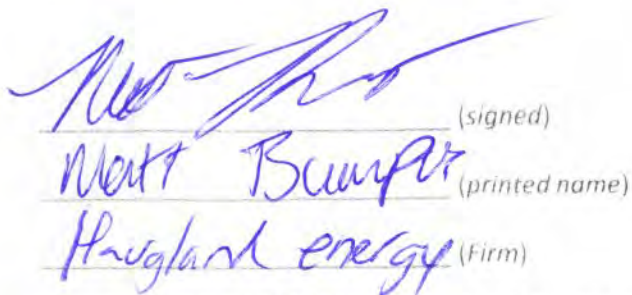 (signed)
Matt Bumpus (printed name)
Haugland energy (Firm)